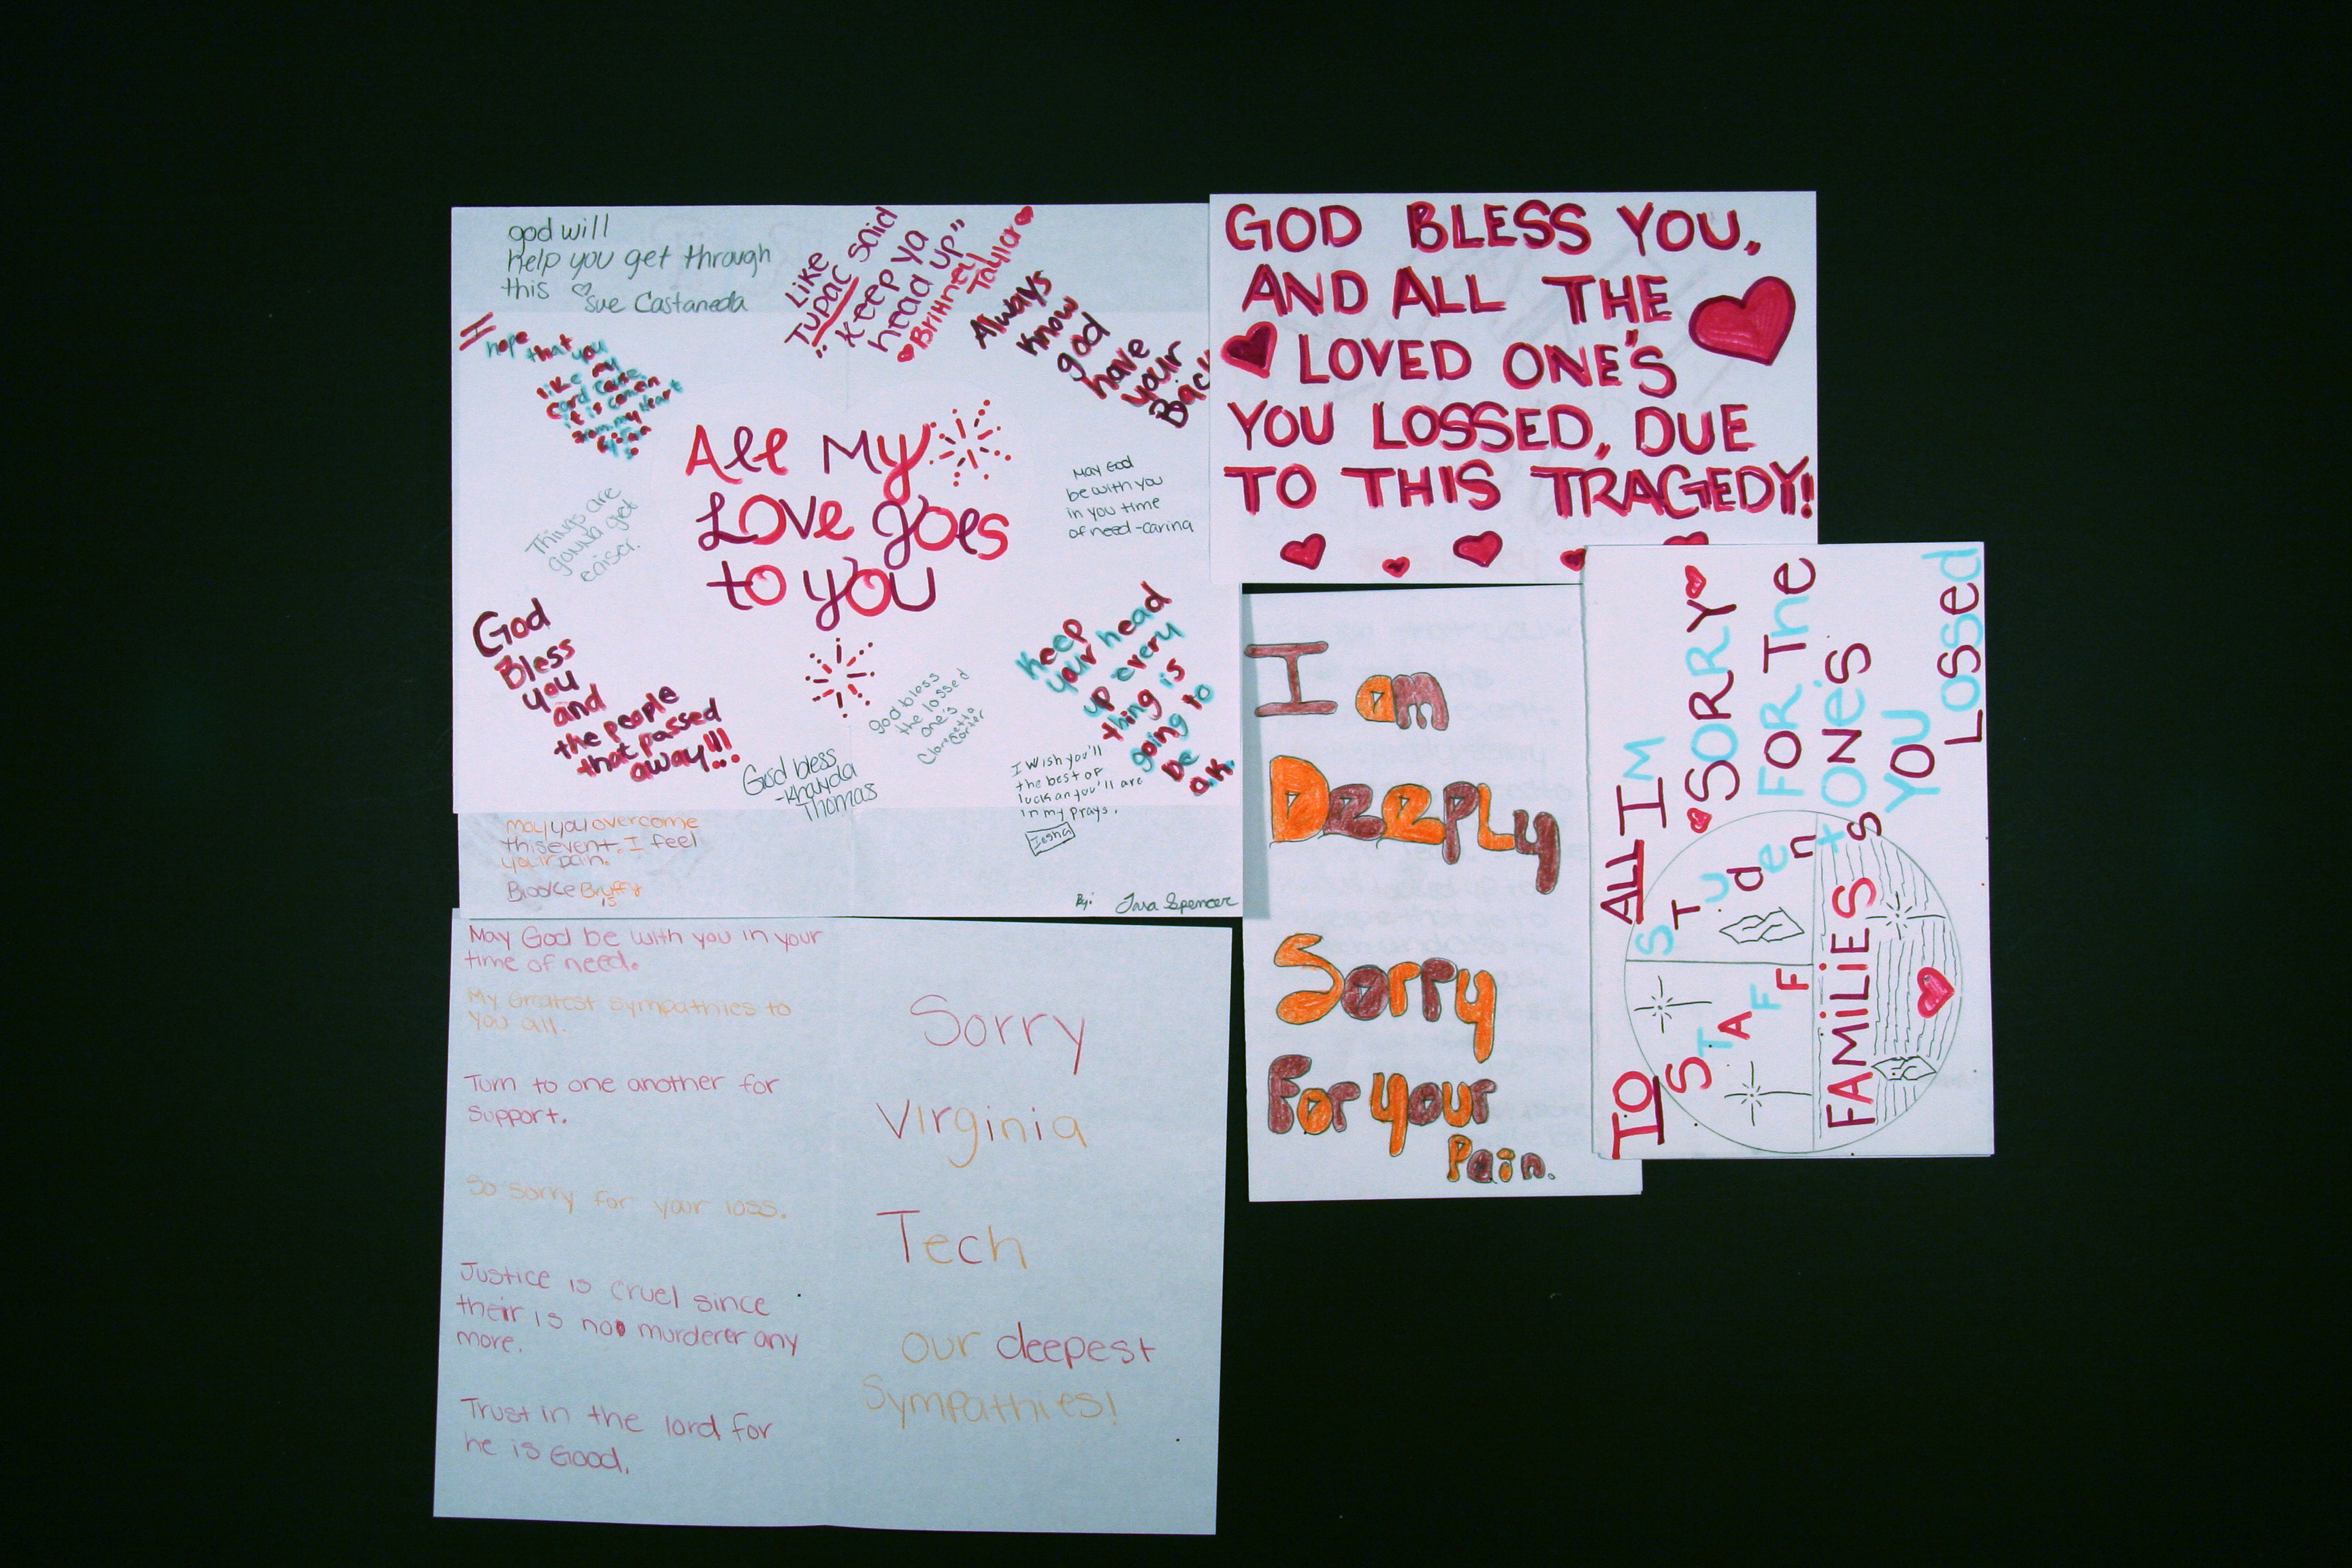 god will
help you get through
this
Sue Castaneda
Like
Tupac said
"Keep ya
head up"
Brittney
Taylor
Always
know
god
have
your
Back
I hope
that you
like my
card cause
it is comen
from my heart
Things are
gonna get
eaiser.
All My
Love goes
to you
May God
be with you
in you time
of need -carina
God
Bless
you
and
the people
that passed
away!!!
God bless
-Khayda
Thomas
god bless
the lossed
one's
Keep
your head
up every
thing is
going to
be
o.k.
I wish you'll
the best of
luck an you'll are
in my prays.
Iesha
may you overcome
this event. I feel
your pain.
Brooke Bruffy
By: Tara Spencer
GOD BLESS YOU,
AND ALL THE
LOVED ONE'S
YOU LOSSED, DUE
TO THIS TRAGEDY!
I am
Deeply
Sorry
For your
Pain.
TO ALL IM
STAFF STUdEnts SORRY
FAMiLiES FOR The
ONE'S
YOU
LOSSed
May God be with you in your
time of need.
My Greatest sympathies to
you all.
Turn to one another for
support.
So sorry for your loss.
Justice is cruel since
their is no murderer any
more.
Trust in the lord for
he is Good.
Sorry
Virginia
Tech
our deepest
Sympathies!